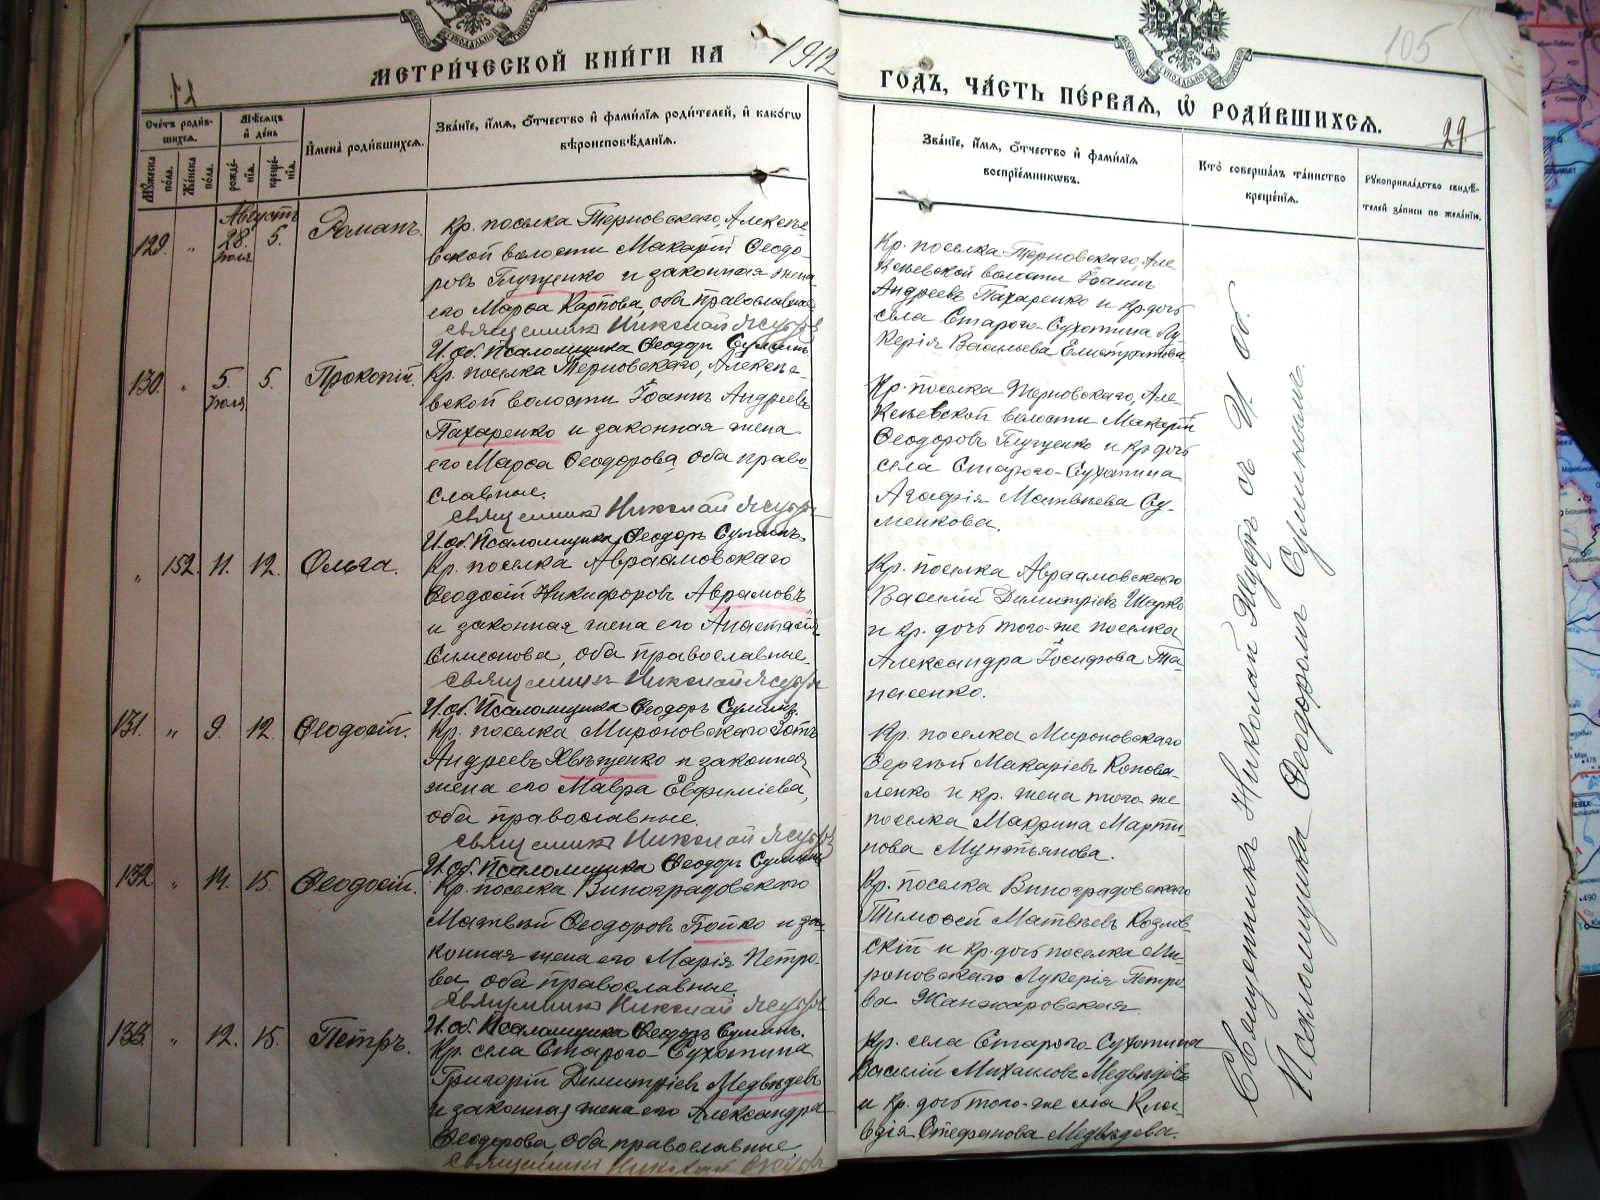 МЕТРИ́ЧЕСКОЙ КНИ́ГИ НА 1912
ГОДЪ, ЧА́СТЬ ПЕ́РВАѦ, Ѡ҆ РОДИ́ВШИХСѦ.
105
29
Счетъ роди́вшихсѧ.
Мꙋ́жеска по́ла.
Же́нска по́ла.
Мѣ́сѧцъ и҆ де́нь
рожде́нїѧ.
креще́нїѧ.
И҆мена̀ роди́вшихсѧ.
Зва́нїе, и҆́мѧ, ѻ҆́тчество и҆ фами́лїѧ роди́телей, и҆ како́гѡ
вѣроисповѣ́данїѧ.
Зва́нїе, и҆́мѧ, ѻ҆́тчество и҆ фами́лїѧ
воспрїе́мникѡвъ.
Кто̀ соверша́лъ та́инство
креще́нїѧ.
Рꙋкоприкла́дство свидѣ́-
телей за́писи по жела́нїю.
Августъ
129. " 28. Іюля 5. Романъ.
Кр. поселка Терновскаго, Алексѣе-
вской волости Макарій Ѳеодо-
ровъ Глущенко и законная жена
его Марѳа Карпова, оба православные
Священникъ Николай
И. об. Псаломщика Ѳеодоръ Сулимъ
Кр. поселка Терновскаго, Але
ксѣевской волости Іоаннъ
Андреевъ Пахаренко и кр. дочь
села Старого-Сухотина Лу
керія Васильева
130. " 5. Іюля 5. Прокопій.
Кр. поселка Терновскаго, Алексѣе-
вской волости Іоаннъ Андреевъ
Пахаренко и законная жена
его Марѳа Ѳеодорова, оба право-
славные.
Священникъ Николай
И. об. Псаломщика Ѳеодоръ Сулимъ.
Кр. поселка Терновскаго, Але
ксѣевской волости Макарій
Ѳеодоровъ Глущенко и кр. дочь
села Старого-Сухотина
Агафія Матвѣева Су-
менкова.
" 152. 11. 12. Ольга.
Кр. поселка Авраамовскаго
Ѳеодосій Никифоровъ Аврамовъ
и законная жена его Анастасія
Симеонова, оба православные.
Священникъ Николай
И. об. Псаломщика Ѳеодоръ Сулимъ.
Кр. поселка Авраамовскаго
Василій Димитріевъ Шарко
и кр. дочь того-же поселка
Александра Іосифова Па-
насенко.
131. " 9. 12. Ѳеодосій.
Кр. поселка Мироновскаго Зотъ
Андреевъ Хвященко и законная
жена его Мавра Евфиміева,
оба православные.
Священникъ Николай
И. об. Псаломщика Ѳеодоръ Сулимъ
Кр. поселка Мироновскаго
Сергѣй Макаріевъ Конова-
ленко и кр. жена того-же
поселка Макрина Марти-
нова Мунтьянова.
132 " 14. 15. Ѳеодосій.
Кр. поселка Виноградовскаго
Матвѣй Ѳеодоровъ Бойко и за-
конная жена его Марія Петро-
ва, оба православные.
Священникъ Николай
И. об. Псаломщика Ѳеодоръ Сулимъ.
Кр. поселка Виноградовскаго
Тимоѳей Матвѣевъ Козлов-
скій и кр. дочь поселка Ми-
роновскаго Лукерія Петро
ва Жанжаровская
133. " 12. 15. Петръ.
Кр. села Старого-Сухотина
Григорій Димитріевъ Медвѣдевъ
и законная жена его Александра
Ѳеодорова, оба православные.
Священникъ Николай
Кр. села Старого-Сухотина
Василій Михаиловъ Медвѣдевъ
и кр. дочь того-же села Клав-
дія Стефанова Медвѣдева.
Священникъ Николай съ И. об.
Псаломщика Ѳеодоромъ Сулимомъ.